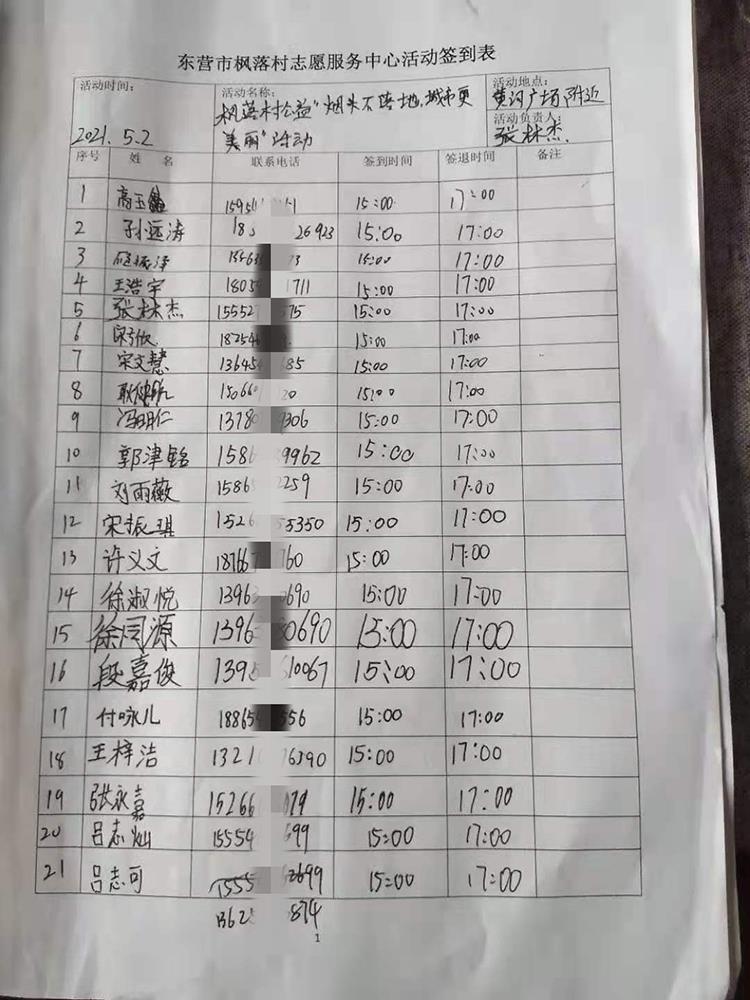 东营市枫落村志愿服务中心活动签到表
活动时间: 2021. 5.2
活动名称: 枫落村公益“烟头不落地,城市更美丽”活动
活动地点: 黄河广场附近
活动负责人: 张林杰
序号 姓 名 联系电话 签到时间 签退时间 备注
1 高玉鑫 15951 1 15:00 17:00
2 孙远涛 18 26923 15:00 17:00
3 15:00 17:00
4 王浩宇 1805 1711 15:00 17:00
5 张林杰 15552 575 15:00 17:00
6 18254 15:00 17:00
7 宋文慧 136454 685 15:00 17:00
8 15066 20 15:00 17:00
9 冯明仁 1378 9306 15:00 17:00
10 郭津铭 1586 9962 15:00 17:00
11 刘雨薇 1586 2259 15:00 17:00
12 宋振琪 1526 55350 15:00 17:00
13 许义文 18766 760 15:00 17:00
14 徐淑悦 1396 0690 15:00 17:00
15 徐同源 1396 80690 15:00 17:00
16 段嘉俊 1395 10067 15:00 17:00
17 付咏儿 18865 556 15:00 17:00
18 王梓洁 1321 6390 15:00 17:00
19 张永嘉 15266 079 15:00 17:00
20 吕志灿 15554 699 15:00 17:00
21 吕志可 1555 2699 15:00 17:00
1362 874
1